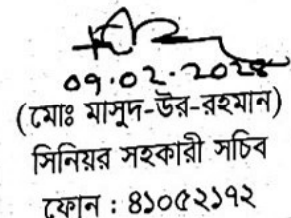 ০৭.০২.২০২৪
(মোঃ মাসুদ-উর-রহমান)
সিনিয়র সহকারী সচিব
ফোন : ৪১০৫২১৭২